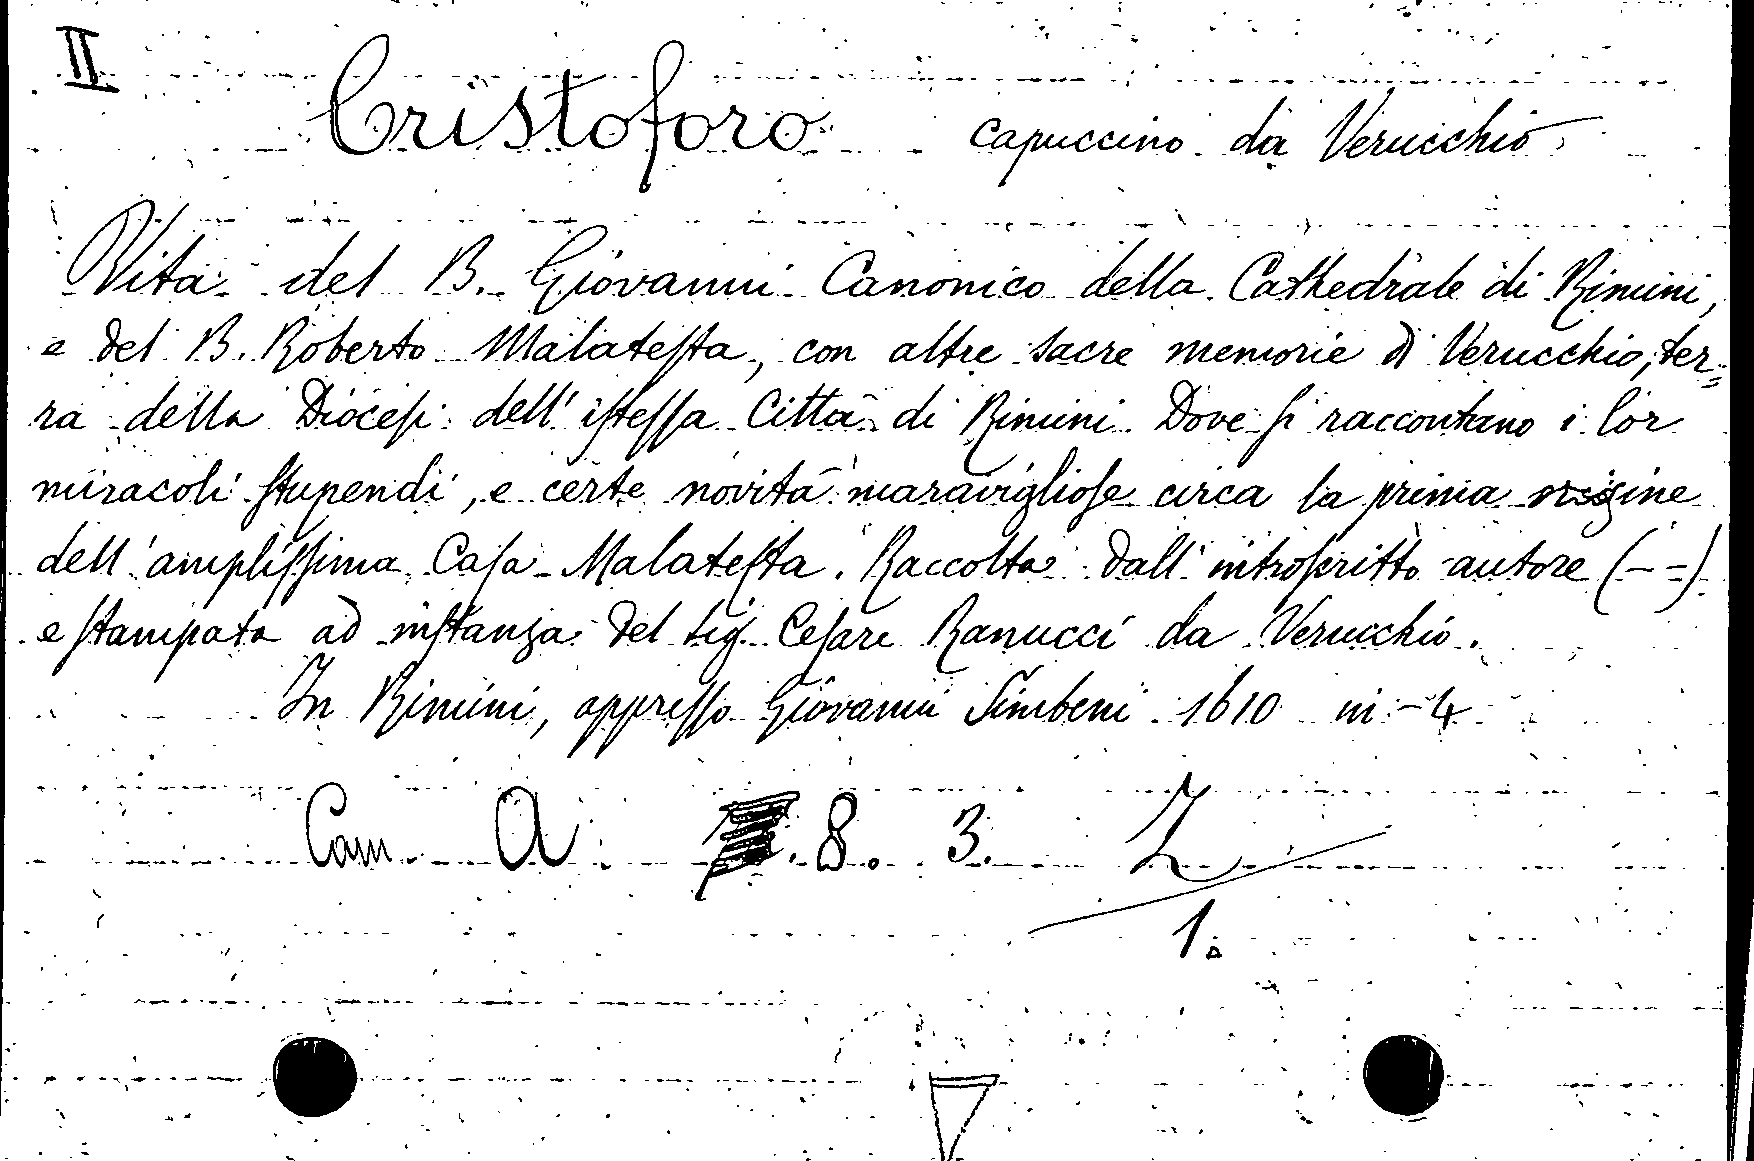 II
Cristoforo capuccino da Verucchio
Vita del B. Giovanni Canonico della Cathedrale di Rimini,
e del B. Roberto Malateſta, con altre sacre memorie di Verucchio, ter=
ra della Dioceſi dell' iſteſſa Città di Rimini. Dove ſi raccontano i lor
miracoli ſtupendi, e certe novità maraviglioſe circa la prima origine
dell'ampliſſima Caſa Malateſta. Raccolta dall'introſcritto autore (- =)
e ſtampata ad inſtanza del Sig. Ceſare Ranucci da Verucchio.
In Rimini, appreſſo Giovanni Simbeni 1610 in-4
Cam A . 8. 3. Z
1.